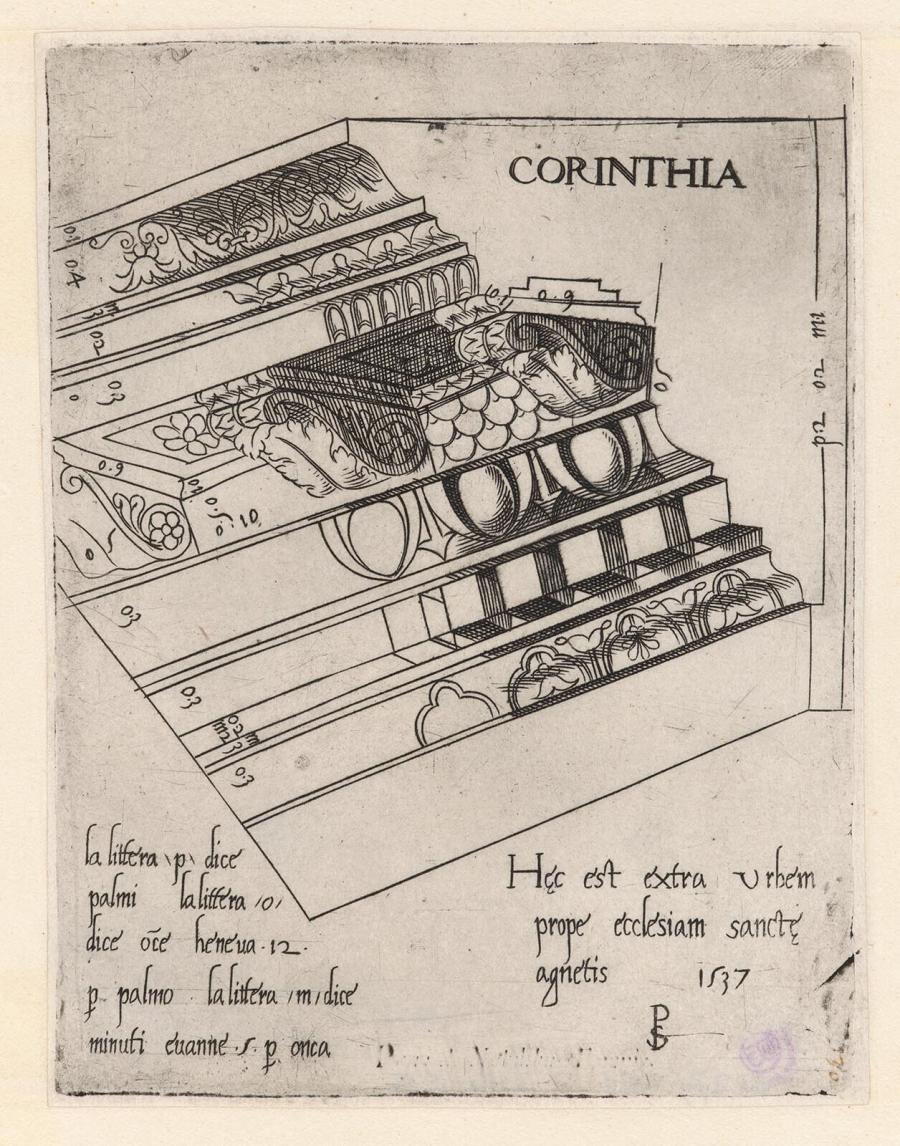 CORINTHIA
0.9
0.4
02
03
0
0.9
0.5
0.10
0
03
0.3
0.2 m
m2 3
0.3
p.2 02 m1
la littera p dice
palmi la littera /o/
dice oc̄e heneua .12.
p̱ palmo . la littera /m/ dice
minuti euanne .5. p̱ onca
Hęc est extra Vrbem
prope ecclesiam sanctę
agnetis 1537
PS